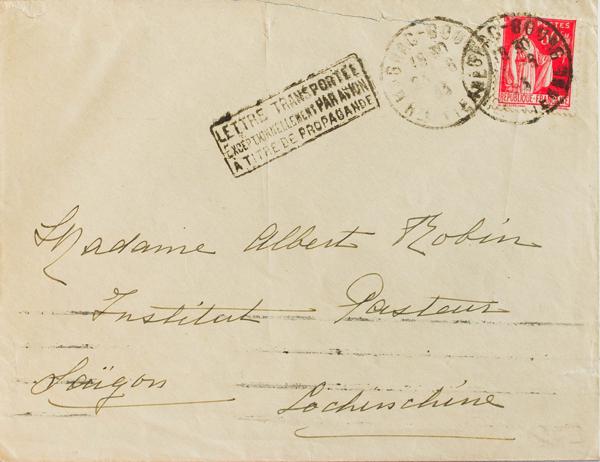 LETTRE TRANSPORTÉE
EXCEPTIONNELLEMENT PAR AVION
A TITRE DE PROPAGANDE
POSTES
REPUBLIQUE FRANÇAISE
Madame Albert Robin
Institut Pasteur
Saïgon
Cochinchine